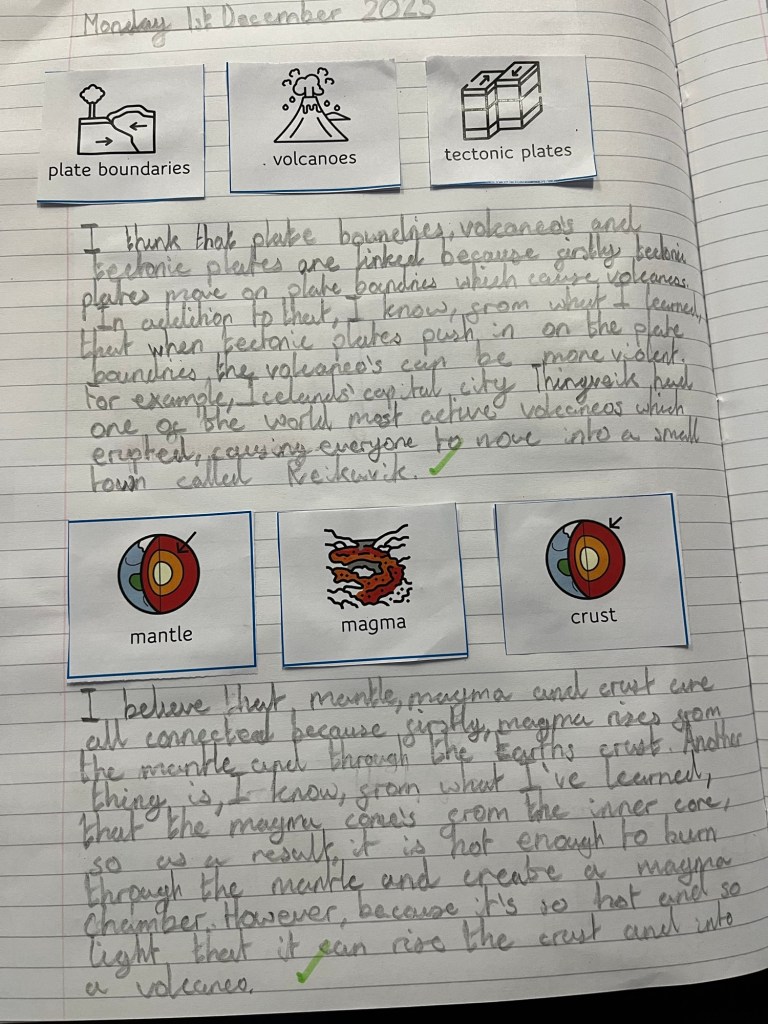 Monday 1st December 2025
plate boundaries
volcanoes
tectonic plates
I think that plate boundries, volcaneo's and
tectonic plates are linked because firstly tectonic
plates move on plate boundries which cause volcaneos.
In addition to that, I know, from what I learned,
that when tectonic plates push in on the plate
boundries the volcaneo's can be more violent.
For example, Icelands' capital city Thingveik had
one of the world most active volcaneos which
erupted, causing everyone to move into a small
town called Reikavik.
mantle
magma
crust
I believe that mantle, magma and crust are
all connected because, firstly, magma rises from
the mantle and through the Earths crust. Another
thing is, I know, from what I've learned,
that the magma come's from the inner core,
so as a result, it is hot enough to burn
through the mantle and create a magma
chamber. However, because it's so hot and so
light, that it can rise the crust and into
a volcaneo.